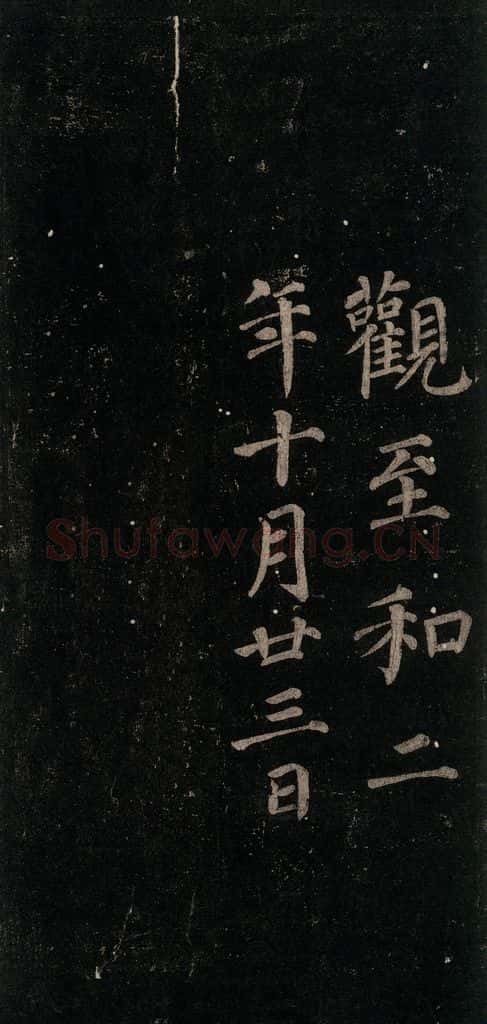 觀至和二
年十月廿三日
Shufawang.CN